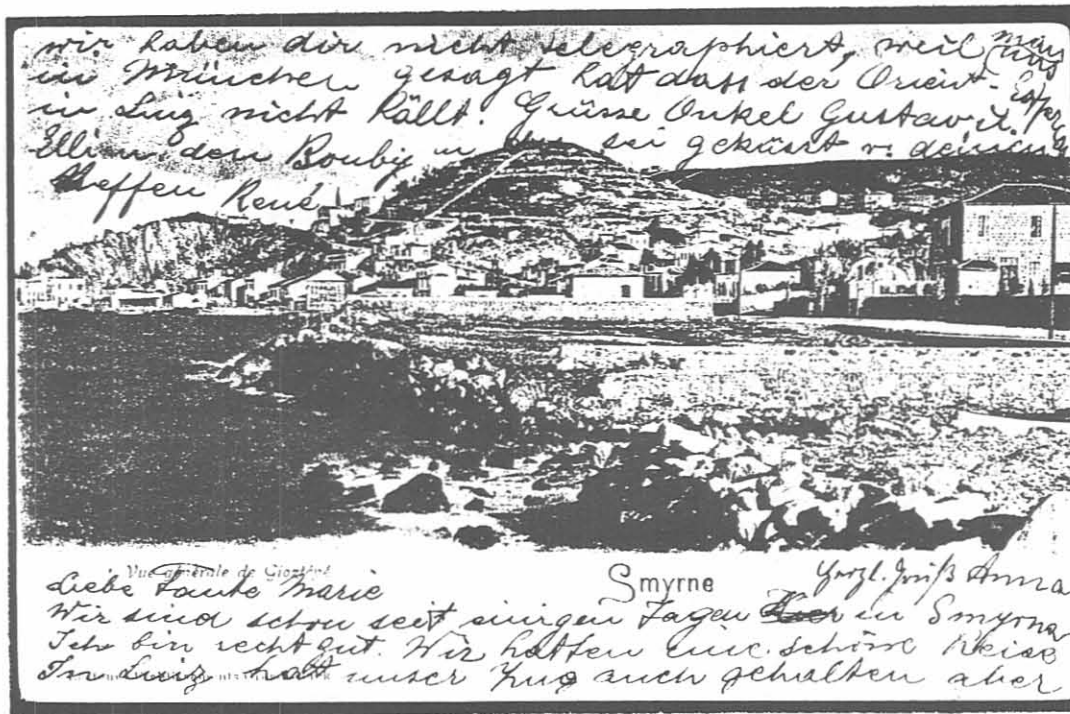 wir haben dir nicht telegraphiert, weil man uns
in München gesagt hat dass der Orient-Expr.
in Linz nicht hällt. Grüsse Onkel Gustav u.
Elli u. den Bouby u sei geküsst v. deinem
Neffen René
Vue générale de Gioztépé
Smyrne
Herzl. Gruß Anna
Liebe Tante Marie
Wir sind schon seit einigen Tagen in Smyrna
Ich bin recht gut. Wir hatten eine schöne Reise
In Linz hatt unser Zug auch gehalten aber